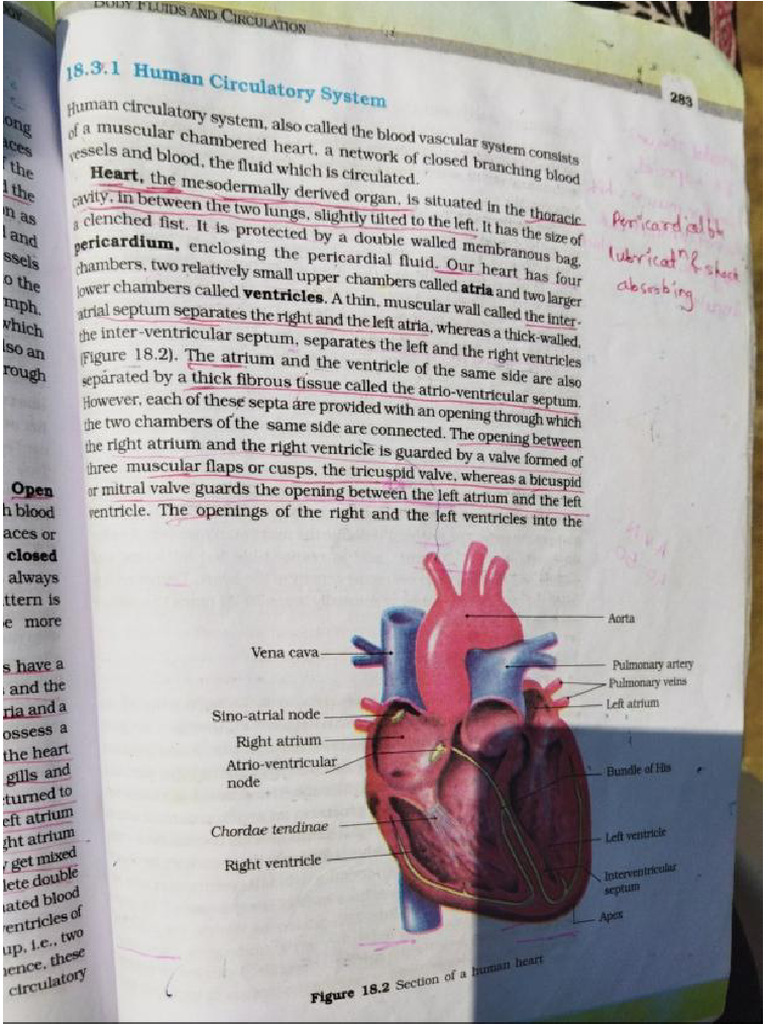 BODY FLUIDS AND CIRCULATION
283
18.3.1 Human Circulatory System
Human circulatory system, also called the blood vascular system consists
of a muscular chambered heart, a network of closed branching blood
vessels and blood, the fluid which is circulated.
Heart, the mesodermally derived organ, is situated in the thoracic
cavity, in between the two lungs, slightly tilted to the left. It has the size of
a clenched fist. It is protected by a double walled membranous bag,
pericardium, enclosing the pericardial fluid. Our heart has four
chambers, two relatively small upper chambers called atria and two larger
lower chambers called ventricles. A thin, muscular wall called the inter-
atrial septum separates the right and the left atria, whereas a thick-walled,
the inter-ventricular septum, separates the left and the right ventricles
(Figure 18.2). The atrium and the ventricle of the same side are also
separated by a thick fibrous tissue called the atrio-ventricular septum.
However, each of these septa are provided with an opening through which
the two chambers of the same side are connected. The opening between
the right atrium and the right ventricle is guarded by a valve formed of
three muscular flaps or cusps, the tricuspid valve, whereas a bicuspid
or mitral valve guards the opening between the left atrium and the left
ventricle. The openings of the right and the left ventricles into the
lubricatⁿ & shock
absorbing
Aorta
Vena cava
Pulmonary artery
Pulmonary veins
Left atrium
Sino-atrial node
Right atrium
Atrio-ventricular
node
Bundle of His
Chordae tendinae
Left ventricle
Right ventricle
Interventricular
septum
Apex
Figure 18.2 Section of a human heart
ong
aces
the
the
n as
and
ssels
o the
mph.
which
lso an
rough
Open
h blood
aces or
closed
always
ttern is
e more
s have a
and the
ria and a
ossess a
the heart
gills and
turned to
eft atrium
ght atrium
get mixed
lete double
nated blood
ventricles of
up, i.e., two
hence, these
circulatory